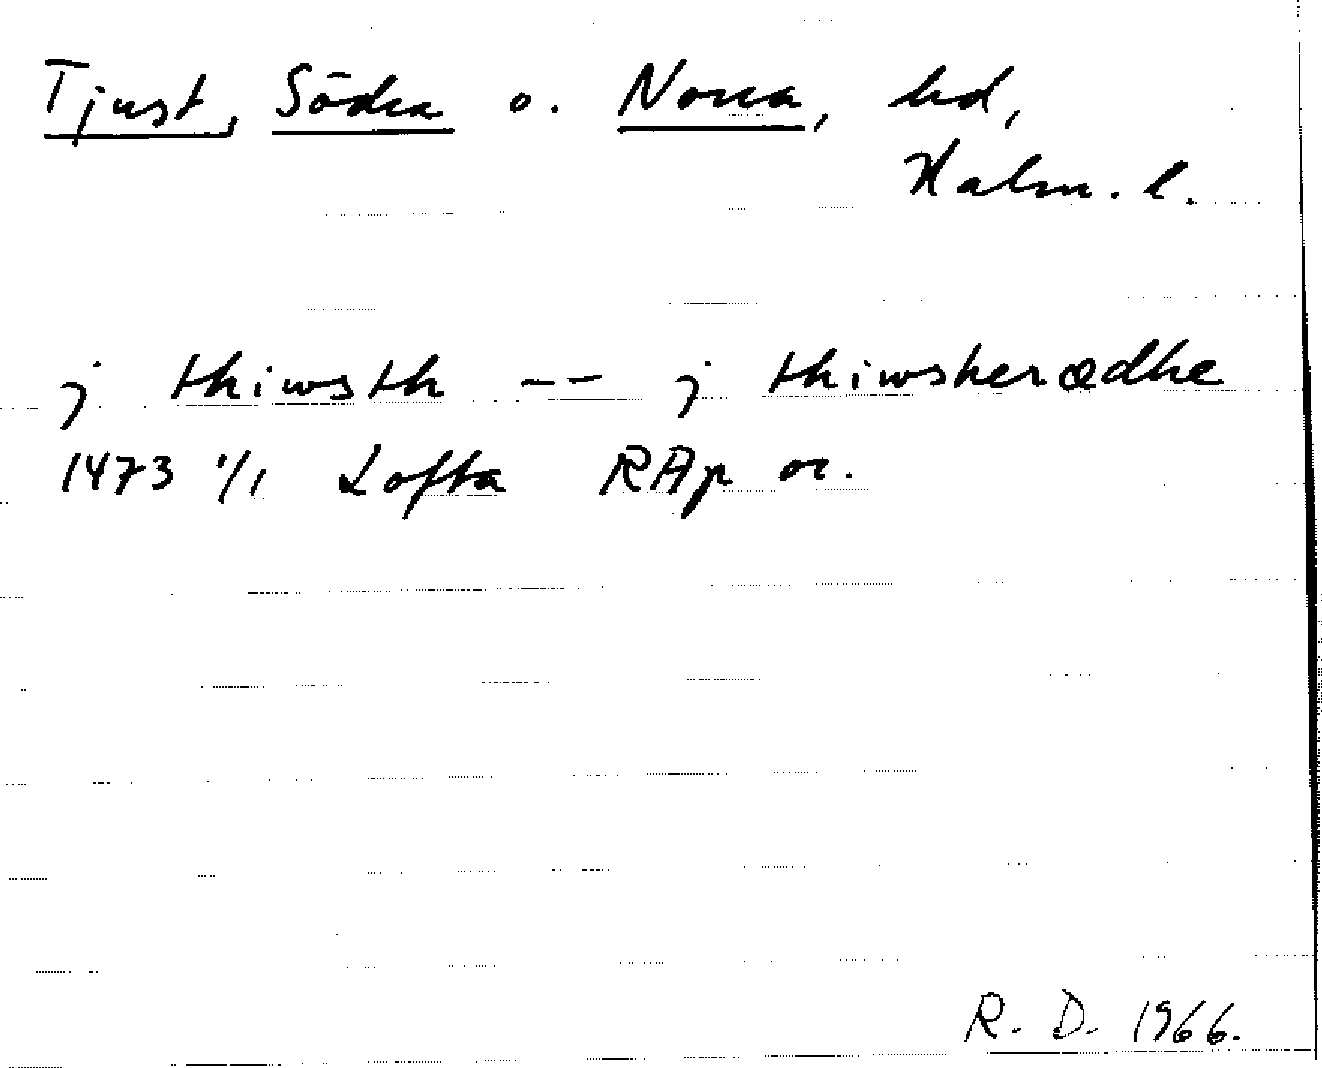 Tjust, Södra o. Norra, hd,
Kalm. l.
j thiwsth -- j thiwsheradhe
1473 1/1 Lofta RAp or.
R. D. 1966.